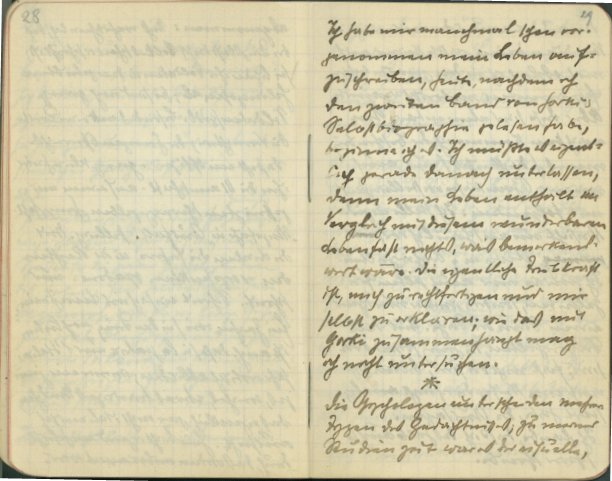 28
29
Ich habe mir manchmal schon vor-
genommen mein Leben aufzu-
zuschreiben, heute, nachdem ich
den zweiten Band von Gorkis
Selbstbiographie gelesen habe,
beginne ich es. Ich müßte es eigent-
lich gerade danach unterlassen,
denn mein Leben enthält im
Vergleich mit diesem wunderbaren
Leben fast nichts, was bemerkens-
wert wäre. Die eigentliche Triebkraft
ist, mich zu rechtfertigen und mir
selbst zu erklären; wie das mit
Gorki zusammenhängt mag
ich nicht untersuchen.
*
Die Psychologen unterscheiden mehrere
Typen des Gedächtnisses, zu meiner
Studienzeit war es der visuelle,